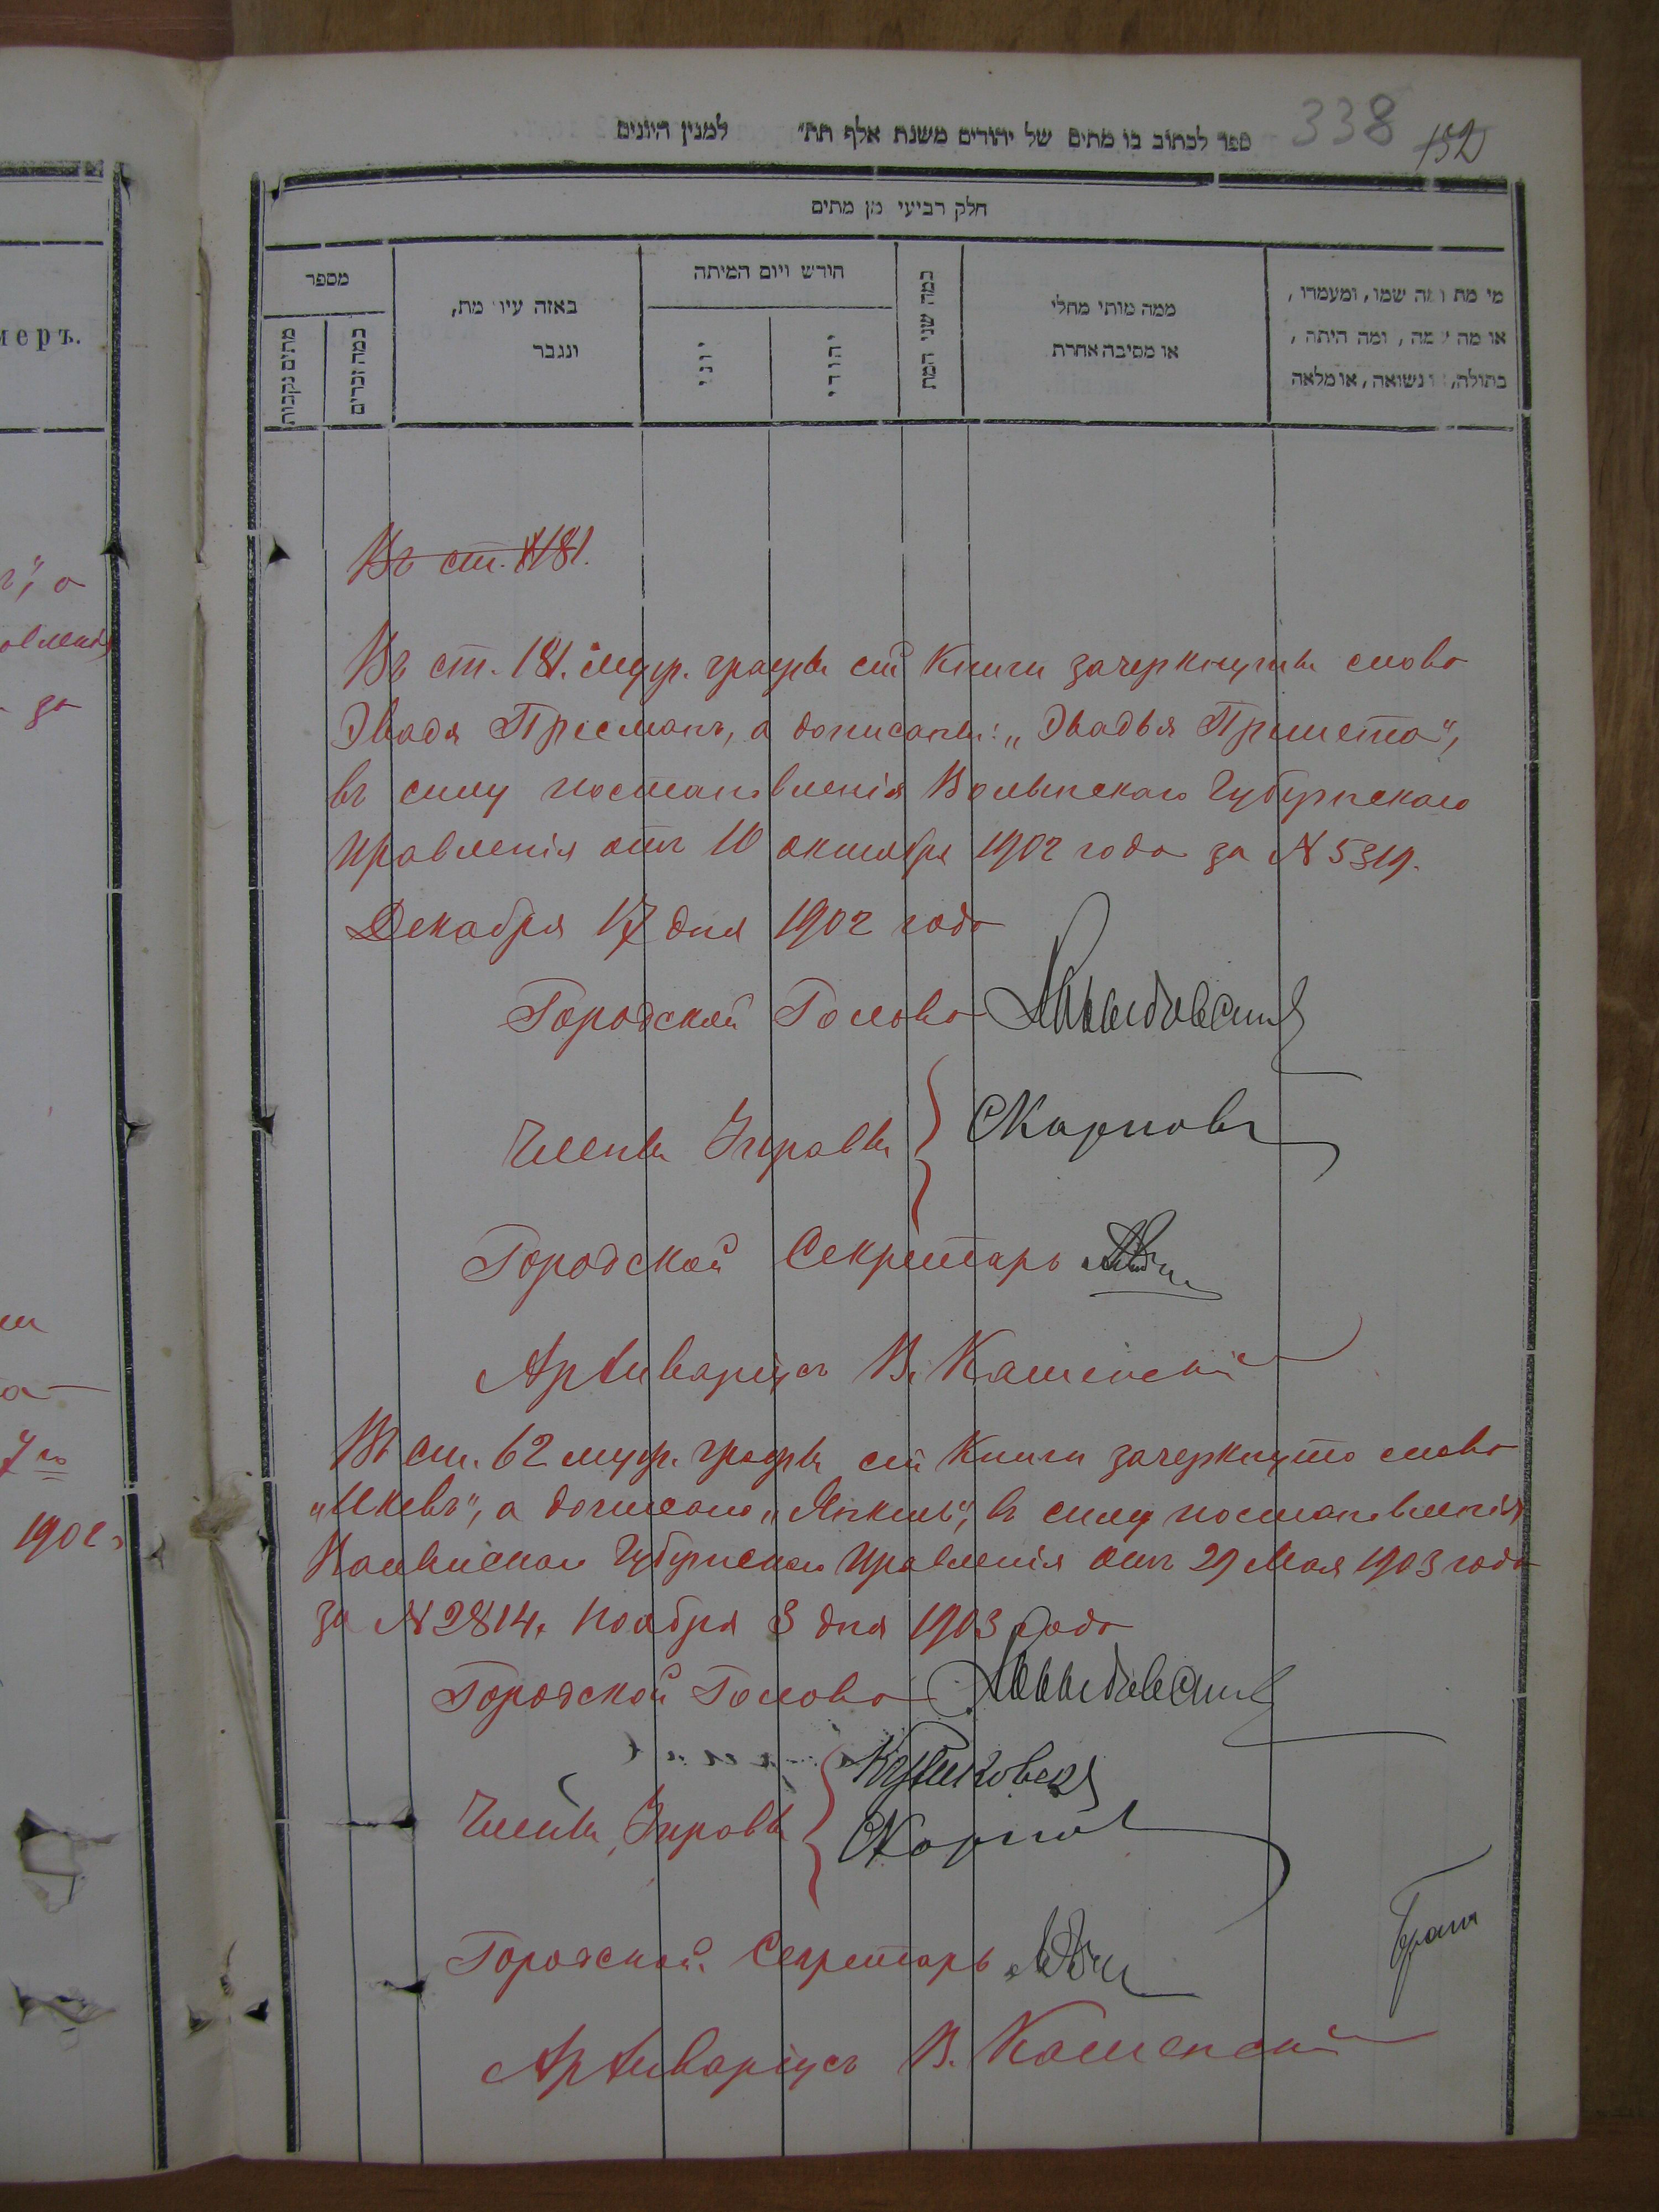 338 152
ספר לכתוב בו מתים של יהודים משנת אלף תת״ למנין היונים
חלק רביעי מן מתים
מספר
מתים נקבות
כמה זכרים
באזה עיר מת,
ונגבר
חודש ויום המיתה
יוני
יהודי
כמה שני המת
ממה מותי מחלי
או מסיבה אחרת
מי מת ומה שמו, ומעמדו,
או מה שמה, ומה היתה,
בתולה, או נשואה, או מלאה
меръ.
Въ ст. 181.
Въ ст. 181. муж. графы сей Книги зачеркнуты слова
Эвадя Пресманъ, а дописаны: „Овадья
въ силу постановленія Волынскаго Губернскаго
Правленія отъ 10 октября 1902 года за № 5319.
Декабря 17 дня 1902 года
Городской Голова
Члены Управы СКарповъ
Городской Секретарь
Архиваріусъ В. Каменскій
Въ ст. 62 муж. графы сей Книги зачеркнуто слово
а дописано „Янкель", въ силу постановленія
Волынскаго Губернскаго Правленія отъ 29 Мая 1903 года
за № 2814. Ноября 3 дня 1903 года
Городской Голова
Члены Управы
СКарповъ
Городской Секретарь
Архиваріусъ В. Каменскій
за
1902